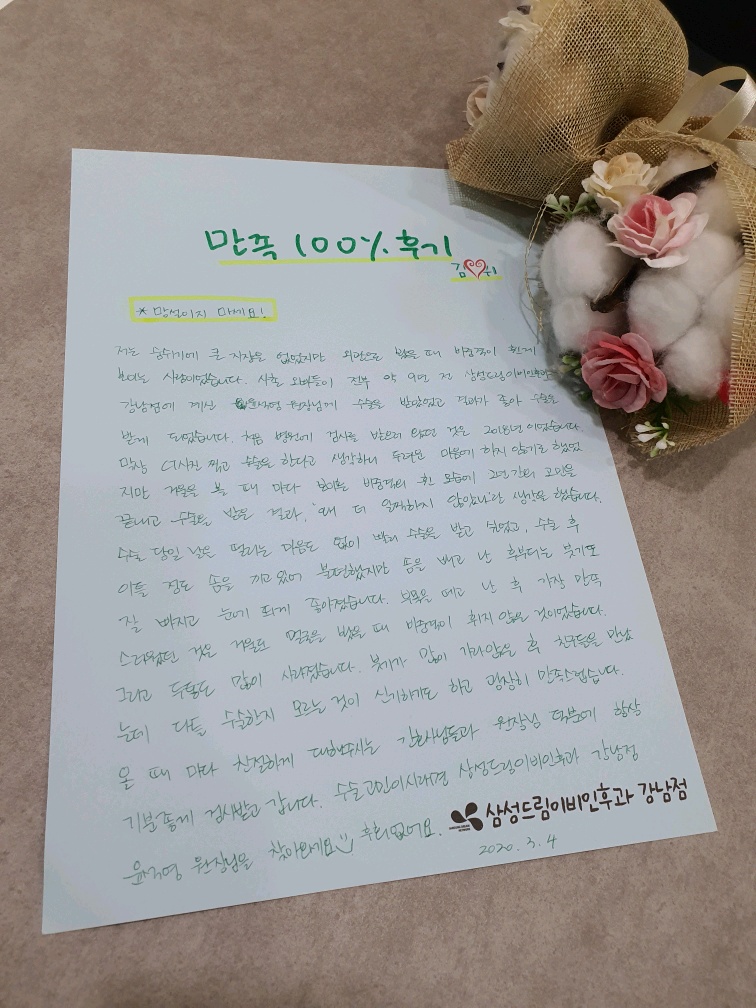 만족 100% 후기
김♥위
* 망설이지 마세요!
저는 숨쉬기에 큰 지장은 없었지만 외관으로 봤을 때 비중격이 휜게
보이는 사람이었습니다. 사촌 오빠들이 전부 약 9년 전 삼성드림이비인후과
강남점에 계신 원장님께 수술을 받았었고 결과가 좋아 수술을
받게 되었습니다. 처음 병원에 검사를 받으러 왔던 것은 2018년이었습니다
막상 CT사진 찍고 수술을 한다고 생각하니 두려운 마음에 하지 않기로 했었
지만 거울을 볼 때 마다 보이는 비중격의 휜 모습에 2년간의 고민을
끝내고 수술을 받은 결과, '왜 더 일찍하지 않았나'란 생각을 했습니다.
수술 당일 날은 떨리는 마음도 없이 빨리 수술을 받고 싶었고, 수술 후
이틀 정도 솜을 끼고 있어 불편했지만 솜을 빼고 난 후부터는 붓기도
잘 빠지고 눈에 띄게 좋아졌습니다. 부목을 떼고 난 후 가장 만족
스러웠던 것은 거울로 얼굴을 봤을 때 비중격이 휘지 않은 것이었습니다.
그리고 두통도 많이 사라졌습니다. 붓기가 많이 가라앉은 후 친구들을 만났
는데 다들 수술한지 모르는 것이 신기하기도 하고 굉장히 만족스럽습니다.
올 때 마다 친절하게 대해주시는 간호사님들과 원장님 덕분에 항상
기분좋게 검사받고 갑니다. 수술고민이시라면 삼성드림이비인후과 강남점
원장님을 찾아와주세요 후회없어요.
삼성드림이비인후과 강남점
2020. 3. 4